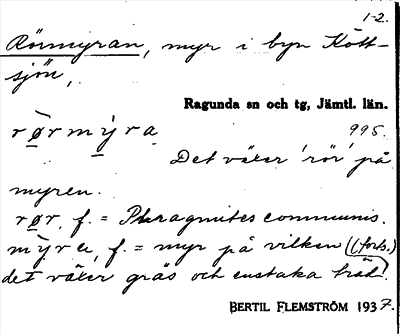 1-2.
Rörmyran, myr i byn Kött-
sjön,
Ragunda sn och tg, Jämtl. län.
rø̀rmy̆ra 995.
Det växer 'rör' på
myren.
rør, f. = Phragmites communis.
my̆ra, f. = myr på vilken ((forts.)
det växer gräs och enstaka träd.)
BERTIL FLEMSTRÖM 1937.